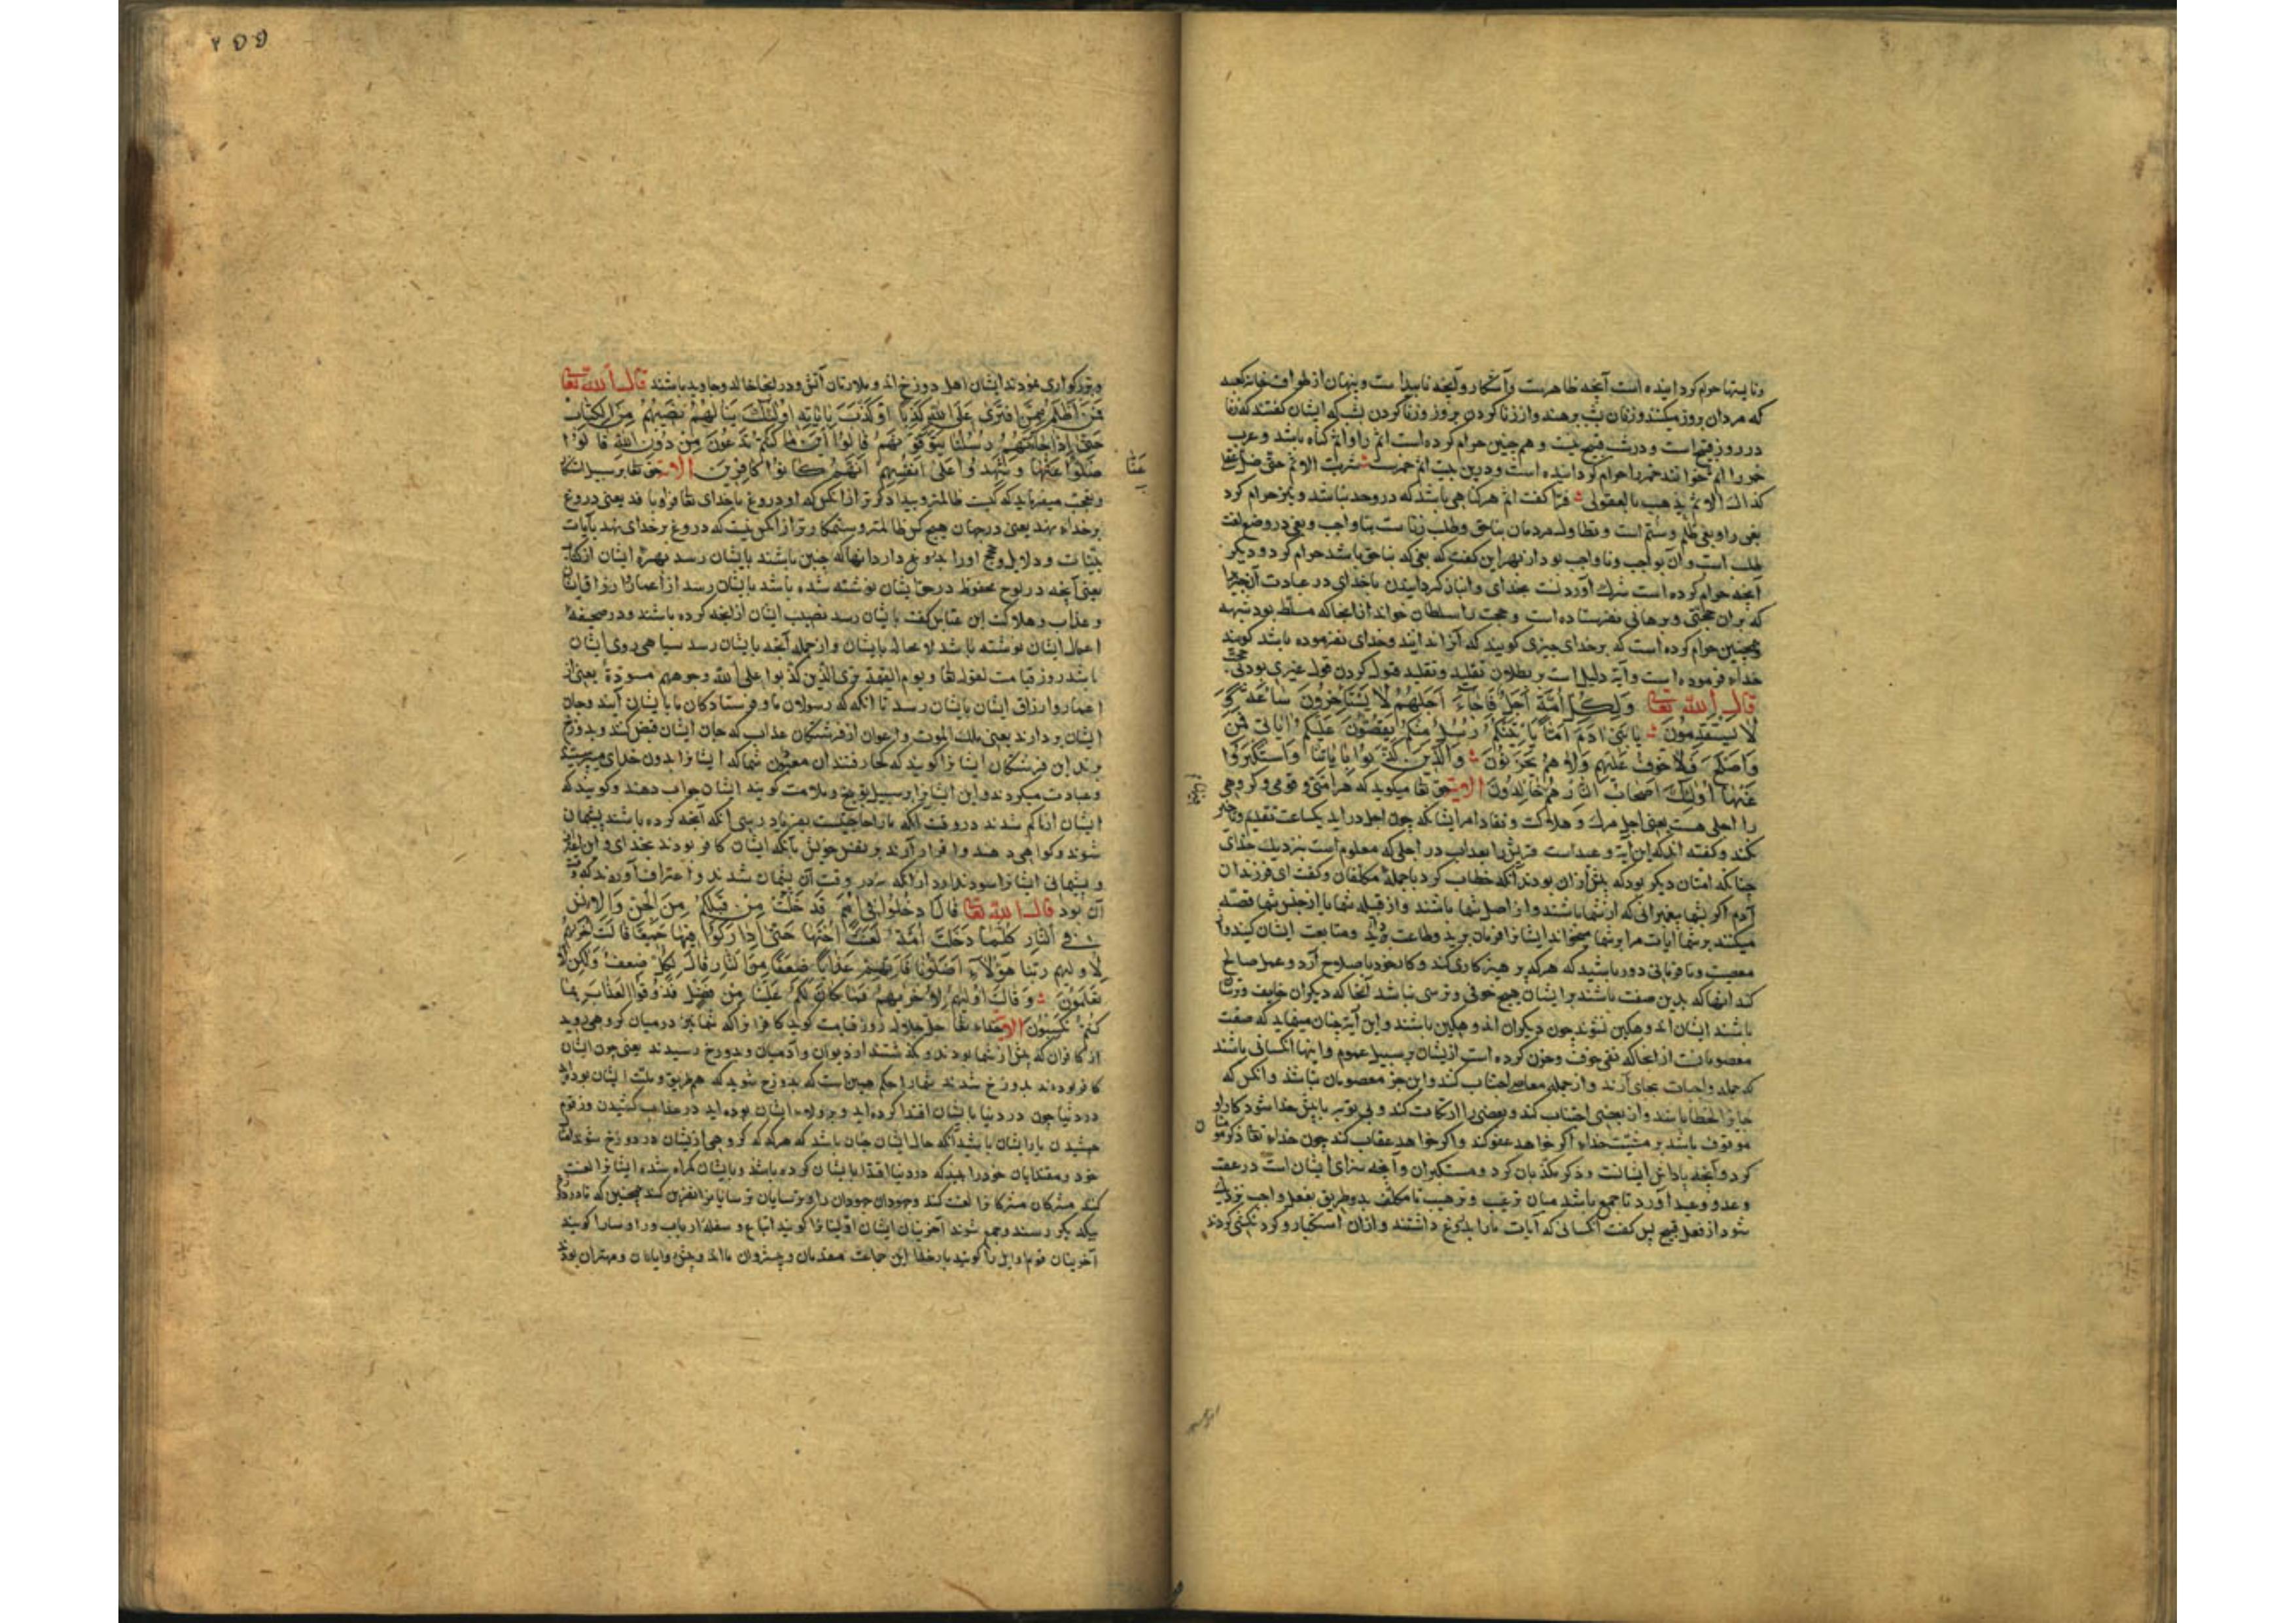 وناپسنها حرام کردانیده است آنچه ظاهرست وآشکار وآنچه ناپیداست وپنهان از طواف خانه کعبه
که مردان بروز میکنند وزنان بشب برهنه واز زنا کردن بروز وزنا کردن بشب که ایشان گفتند که زنا
در روز قبیح است ودر شب قبیح نیست وهمچنین حرام کرده است اثم را واثم کناه باشد وعرب
خمر را اثم خوانند خمر را حرام کردانیده است ودرین بیت اثم خمرست شربت الاثم حتی ضل عقلی
کذاک الاثم یذهب بالعقول فرّا کفت اثم هرکناهی باشد که در وحد نباشد ونیز حرام کرد
بغی را وبغی ظلم وستم است وتطاول مردمان بناحق وطلب زناست بناواجب وبغی در وضع لغت
طلب است وآن بواجب وناواجب بود از بهر این کفت که بغی که بناحق باشد حرام کرد ودیگر
آنچه حرام کرده است شرک آوردنست بخدای وانباز کردانیدن باخدای در عبادت آن چیز را
که بران حجتی وبرهانی نفرستاده است وحجت را سلطان خواند از آنجا که مسلط بود بشبهه
وهمچنین حرام کرده است که برخدای چیزی کویند که آنرا ندانند وخدای نفرموده باشد کویند
خداء فرموده است وآیة دلیل است بر بطلان تقلید وتقلید قبول کردن قول غیری بود بی حجت
قال الله تعا وَلِكُلِّ أُمَّةٍ أَجَلٌ فَإِذَا جَاءَ أَجَلُهُمْ لَا يَسْتَأْخِرُونَ سَاعَةً وَ
لَا يَسْتَقْدِمُونَ يَا بَنِي آدَمَ إِمَّا يَأْتِيَنَّكُمْ رُسُلٌ مِنْكُمْ يَقُصُّونَ عَلَيْكُمْ آيَاتِي فَمَنِ
وَأَصْلَحَ فَلَا خَوْفٌ عَلَيْهِمْ وَلَا هُمْ يَحْزَنُونَ وَالَّذِينَ كَذَّبُوا بِآيَاتِنَا وَاسْتَكْبَرُوا
عَنْهَا أُولَئِكَ أَصْحَابُ النَّارِ هُمْ خَالِدُونَ الآیة حق تعا میکوید که هر امتی وقومی وکروهی
را اجلی هست یعنی اجل مرک وهلاکت ونفاد امر ایشانکه چون اجل در اید یکساعت تقدیم وتاخیر
نکند وکفته اند که این آیة وعید است قریش را بعذاب در اجلی که معلوم است بنزدیک خدای
چنانکه امتان دیکر بود که پیش از آن بودند آنکه خطاب کرد باجملهٔ مکلفان وکفت ای فرزندان
آدم اکر بشما پیغمبرانی که از شما باشند واز اصل شما باشند واز قبیله شما یا از جنس شما قصّه
میکنند برشما آیات مرا برشما میخوانند ایشانرا فرمان برید وطاعت دارید ومتابعت ایشان کنید واز
معصیت ونافرمانی دور باشید که هرکه پرهیزکاری کند وکار خود باصلاح آرد وعمل صالح
کند آنهاکه بدین صفت باشند بر ایشان هیچ خوفی وترسی نباشد آنجا که دیکران خایف وترسان
باشند ایشان اندوهکین نشوند چون دیکران اندوهکین باشند واین آیة چنان مینماید که صفت
معصومانست از آنجا که نفی خوف وحزن کرده است از یشان بر سبیل عموم واینها آنکسانی باشند
که جمله واجبات بجای آرند واز جمله معاصی اجتناب کنند واین جز معصومان نباشد وانکس که
جایز الخطا باشد واز بعضی اجتناب کند وبعضی را ارتکاب کند وبی توبه باپیش خدا شود کار او
موقوف باشد بر مشیّت خداء اکر خواهد عفو کند واکر خواهد عقاب کند چون خداء تعا ذکر مؤمنان
کرد وآنچه پاداش ایشانست وذکر مکذبان کرد ومستکبران وآنچه سزای ایشان است در عقب
وعد ووعید آورد تا جمع باشد میان ترغیب وترهیب تا مکلف بدو طریق بفعل واجب نزدیک
شود از فعل قبیح پس کفت آنکسانی که آیات ما را بدروغ داشتند واز آن استکبار وکردنکشی کردند
وبزرکواری نمودند ایشان اهل دوزخ اند وملازمان آتش ودر آنجا خالد وجاوید باشند قال الله تعا
فَمَنْ أَظْلَمُ مِمَّنِ افْتَرَى عَلَى اللَّهِ كَذِبًا أَوْ كَذَّبَ بِآيَاتِهِ أُولَئِكَ يَنَالُهُمْ نَصِيبُهُمْ مِنَ الْكِتَابِ
حَتَّى إِذَا جَاءَتْهُمْ رُسُلُنَا يَتَوَفَّوْنَهُمْ قَالُوا أَيْنَ مَا كُنْتُمْ تَدْعُونَ مِنْ دُونِ اللَّهِ قَالُوا
ضَلُّوا عَنَّا وَشَهِدُوا عَلَى أَنْفُسِهِمْ أَنَّهُمْ كَانُوا كَافِرِينَ الآیة حق تعا بر سبیل انکار
عَنَّا
وتعجب میفرماید که کیست ظالمتر وبیدادکرتر از آنکس که او دروغ باخدای تعا فرابافد یعنی دروغ
برخداء نهد یعنی در جهان هیچ کس ظالمتر وستمکارتر از آنکس نیست که دروغ برخدای نهد یا آیات
بیّنات ودلایل وحجج اورا بدروغ دارد آنها که چنین باشند بایشان رسد بهرهٔ ایشان از کتاب
یعنی آنچه در لوح محفوظ در حق ایشان نوشته شده باشد بایشان رسد از اعمار وارزاق
وعذاب وهلاکت ابن عباس کفت بایشان رسد نصیب ایشان از آنچه کرده باشند ودر صحیفهٔ
اعمال ایشان نوشته باشد لامحاله بایشان واز جمله آنچه بایشان رسد سیاهی روی ایشان
باشد روز قیامت لقوله تعا ویوم القیمة تری الذین کذبوا علی الله وجوههم مسودة یعنی از
اعمار وارزاق ایشان بایشان رسد تا آنکه که رسولان ما وفرستادکان ما بایشان آیند وجان
ایشان بردارند یعنی ملک الموت واعوان از فرشتکان عذاب که جان ایشان قبض کنند وبدوزخ
برند این فرشتکان ایشانرا کویند که کجا رفتند آن معبودان شما که ایشانرا بدون خدای میپرستیدید
وعبادت میکردند واین ایشانرا بر سبیل توبیخ وملامت کویند ایشان جواب دهند وکویند که
ایشان از ما کم شدند در وقت آنکه ما را حاجتست بفریادرسی آنکه آنچه کرده باشند پشیمان
شوند وکواهی دهند واقرار آرند بر نفس خویش بآنکه ایشان کافر بودند بخدای واین اقرار
وپشیمانی ایشانرا سود ندارد از آنکه نه در وقت آن پشیمان شدند واعتراف آوردند که وقت
آن بود قال الله تعا قَالَ ادْخُلُوا فِي أُمَمٍ قَدْ خَلَتْ مِنْ قَبْلِكُمْ مِنَ الْجِنِّ وَالْإِنْسِ
فِي النَّارِ كُلَّمَا دَخَلَتْ أُمَّةٌ لَعَنَتْ أُخْتَهَا حَتَّى إِذَا ادَّارَكُوا فِيهَا جَمِيعًا قَالَتْ أُخْرَاهُمْ
لِأُولَاهُمْ رَبَّنَا هَؤُلَاءِ أَضَلُّونَا فَآتِهِمْ عَذَابًا ضِعْفًا مِنَ النَّارِ قَالَ لِكُلٍّ ضِعْفٌ وَلَكِنْ لَا
تَعْلَمُونَ وَقَالَتْ أُولَاهُمْ لِأُخْرَاهُمْ فَمَا كَانَ لَكُمْ عَلَيْنَا مِنْ فَضْلٍ فَذُوقُوا الْعَذَابَ بِمَا
كُنْتُمْ تَكْسِبُونَ الآیة خداء تعا جل جلاله روز قیامت کوید کافرانرا که شما نیز در میان کروهی روید
از کافران که پیش از شما بودند وبکذشتند از دیوان وآدمیان وبدوزخ رسیدند یعنی چون ایشان
کافر بودند بدوزخ شدند شما را حکم همین است که بدوزخ شوید که هم طریق وملت ایشان بوده اید
در دنیا چون در دنیا بایشان اقتدا کرده اید وبر ولاء ایشان بوده اید در عذاب کشیدن وزقوم
چشیدن یار ایشان باشید آنکه حال ایشان چنان باشد که هرکه که کروهی از یشان در دوزخ شوند
خود ومقتدایان خود را بیند که در دنیا اقتدا بایشان کرده باشد وبایشان کمراه شده ایشانرا لعنت
کند مشرکان مشرکانرا لعنت کند وجهودان جهودان را وترسایان ترسایانرا نفرین کند همچنین که تا در
بیکدیکر رسند وجمع شوند آخرینان ایشان اوّلینانرا کویند اتباع وسفله ارباب ورا وسارا کویند
آخرینان قوم اوایل را کویند بار خدا این جماعت مقدمان وپیشروان مااند وپیشوایان ومهتران بودند